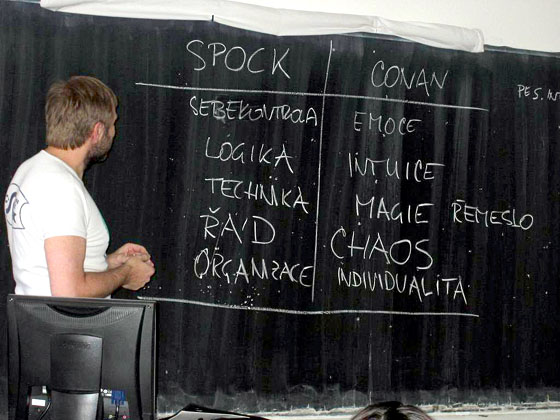 SPOCK CONAN
PES. INT
SEBEKONTROLA EMOCE
LOGIKA INTUICE
TECHNIKA MAGIE ŘEMESLO
ŘÁD CHAOS
ORGANIZACE INDIVIDUALITA